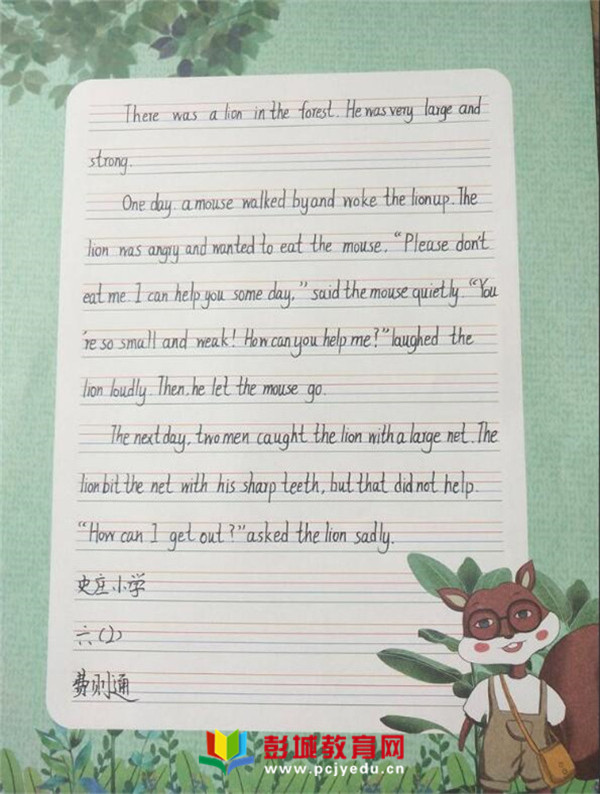 There was a lion in the forest. He was very large and
strong.
One day. a mouse walked by and woke the lion up. The
lion was angry and wanted to eat the mouse. “Please don't
eat me. I can help you some day,” said the mouse quietly. “You
're so small and weak! How can you help me?” laughed the
lion loudly. Then, he let the mouse go.
The next day, two men caught the lion with a large net. The
lion bit the net with his sharp teeth, but that did not help.
“How can I get out?” asked the lion sadly.
史庄小学
六(2)
费则通
彭城教育网
www.pcjyedu.cn